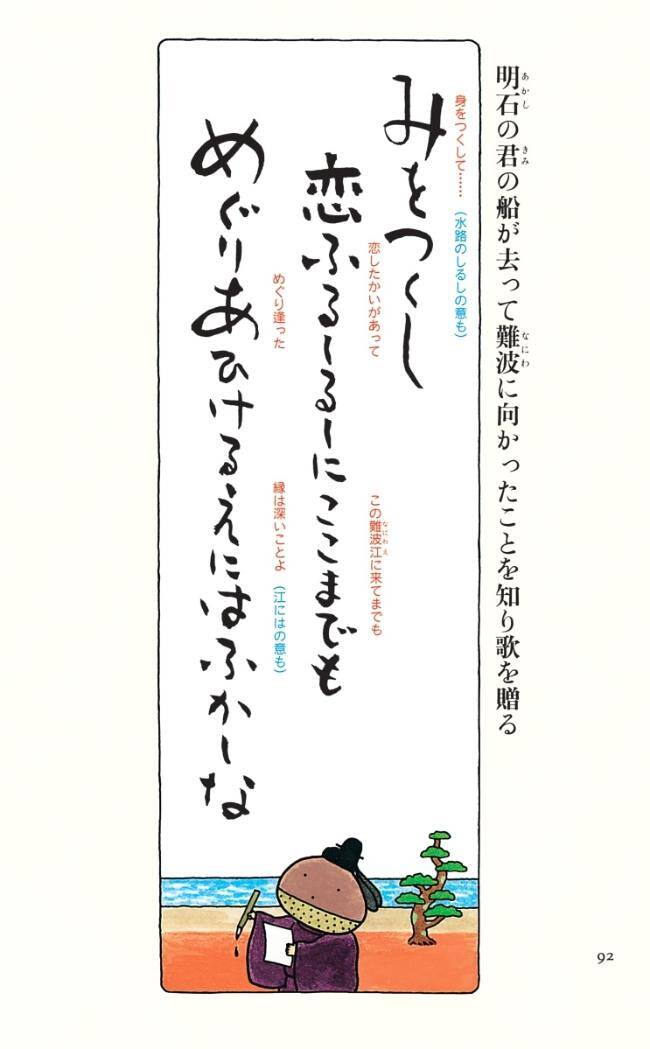 明石の君の船が去って難波に向かったことを知り歌を贈る
あかし
きみ
なにわ
身をつくして……（水路のしるしの意も）
みをつくし
恋したかいがあって
この難波江に来てまでも
なにわえ
恋ふるしるしにここまでも
めぐり逢った
縁は深いことよ（江にはの意も）
めぐりあひけるえにはふかしな
92